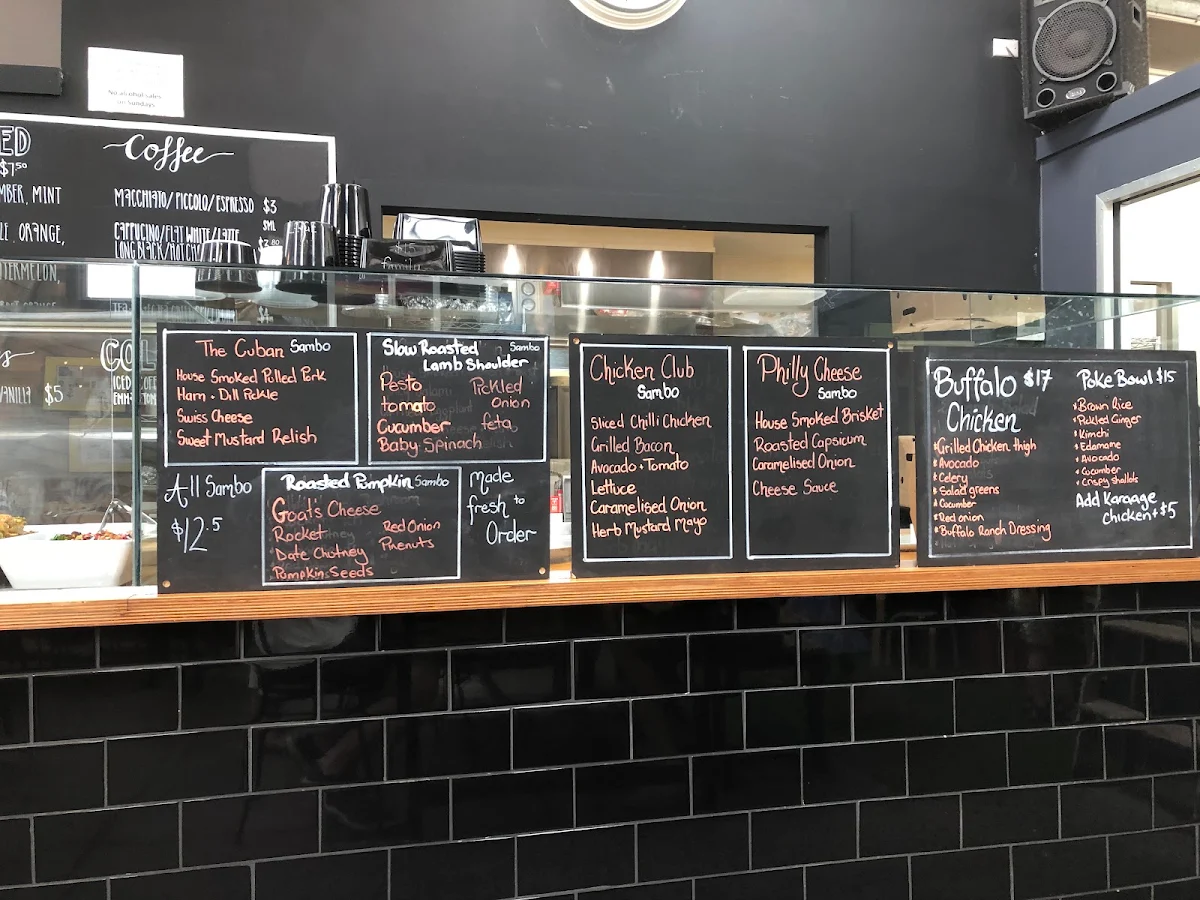 No alcohol sales
on Sundays
ED
$7.50
MBER, MINT
ORANGE,
TERMELON,
Coffee
MACCHIATO/PICCOLO/ESPRESSO $3
CAPPUCINO/FLAT WHITE/LATTE
LONG BLACK/HOT CHO
$5
ICED
The Cuban Sambo
House Smoked Pulled Pork
Ham • Dill Pickle
Swiss Cheese
Sweet Mustard Relish
Slow Roasted Sambo
Lamb Shoulder
Pesto
tomato
Cucumber
Baby Spinach
Pickled
Onion
feta
All Sambo
$12.5
Roasted Pumpkin Sambo
Goats Cheese
Rocket
Date Chutney
Pumpkin Seeds
Red Onion
Pinenuts
Made
fresh to
Order
Chicken Club
Sambo
Sliced Chilli Chicken
Grilled Bacon
Avocado • Tomato
Lettuce
Caramelised Onion
Herb Mustard Mayo
Philly Cheese
Sambo
House Smoked Brisket
Roasted Capsicum
Caramelised Onion
Cheese Sauce
Buffalo $17
Chicken
*Grilled Chicken thigh
*Avocado
*Celery
*Salad greens
*Cucumber
*Red onion
*Buffalo Ranch Dressing
Poke Bowl $15
*Brown Rice
*Pickled Ginger
*Kimchi
*Edamame
*Avocado
*Cucumber
*Crispy shallots
Add Karaage
chicken + $5